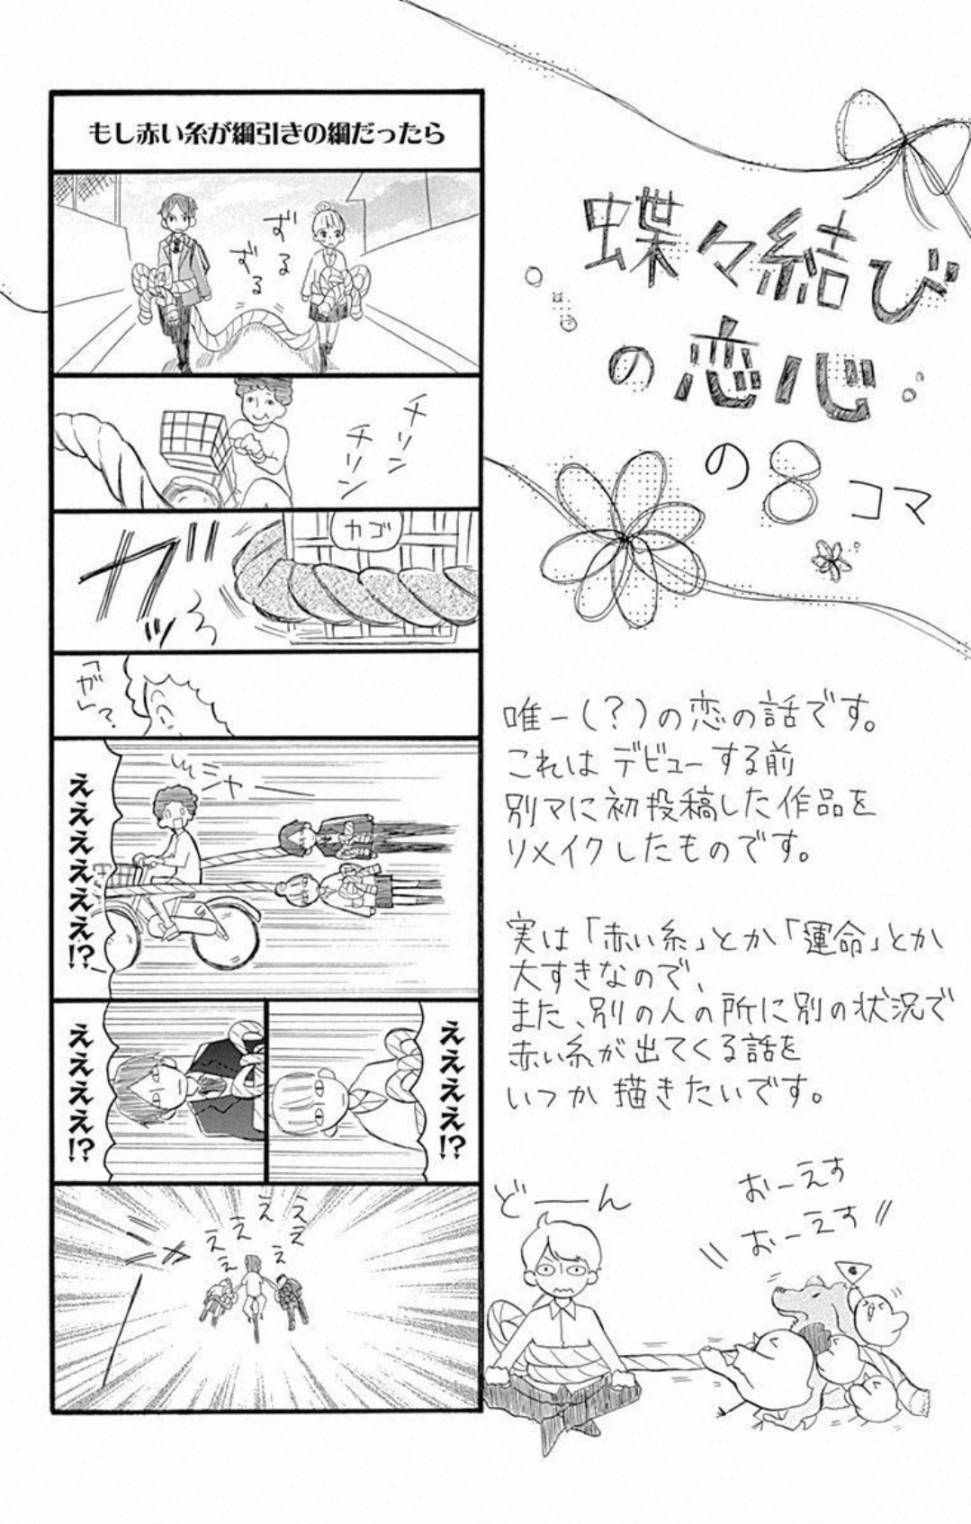 蝶々結び
の恋心
の8コマ
唯一(?)の恋の話です。
これはデビューする前
別マに初投稿した作品を
リメイクしたものです。
実は「赤い糸」とか「運命」とか
大すきなので、
また、別の人の所に別の状況で
赤い糸が出てくる話を
いつか描きたいです。
おーえす
おーえす
どーーん
もし赤い糸が綱引きの綱だったら
ずる
ずる
チリン
チリン
カゴ
ガッ
えええええええ!?
ええええ!?
ええええ!?
ええ
え
え
え
ええ